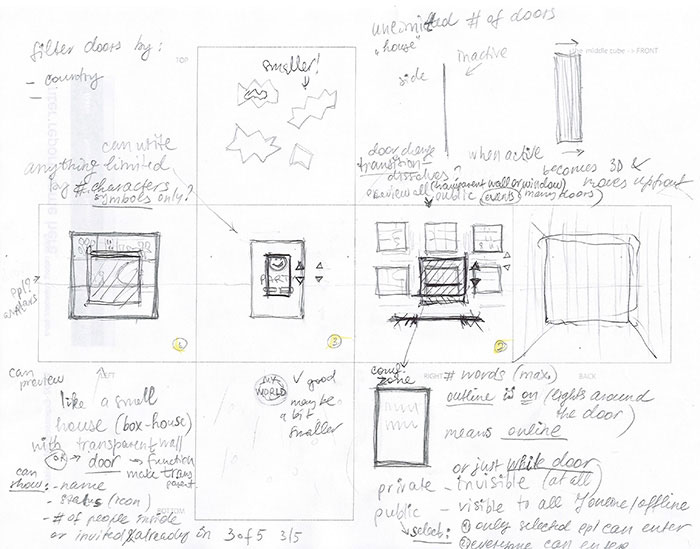 filter doors by:
- country
-
TOP
smaller!
# of doors
"house"
inactive
side
middle cube -> FRONT
can write
anything limited
by # characters
symbols only?
door change
transition-
dissolves?
when active
becomes 3D &
moves upfront
(transparent wall or window)
public (events/many doors)
ppl?
avatars
PARTY
1
3
2
can
preview
LEFT
RIGHT
BACK
like a small
house (box-house)
with transparent wall
OR -> door -> function
make trans
parent
can
show: - name
- status (icon)
- # of people inside
or invited & already in 3 of 5 3/5
BOTTOM
MY
WORLD
✓ good
maybe
a bit
smaller
comf.
zone
# words (max)
outline is on (lights around
the door)
means online
or just white door
private - invisible (at all)
public - visible to all online/offline
select: ① only selected ppl can enter
② everyone can enter